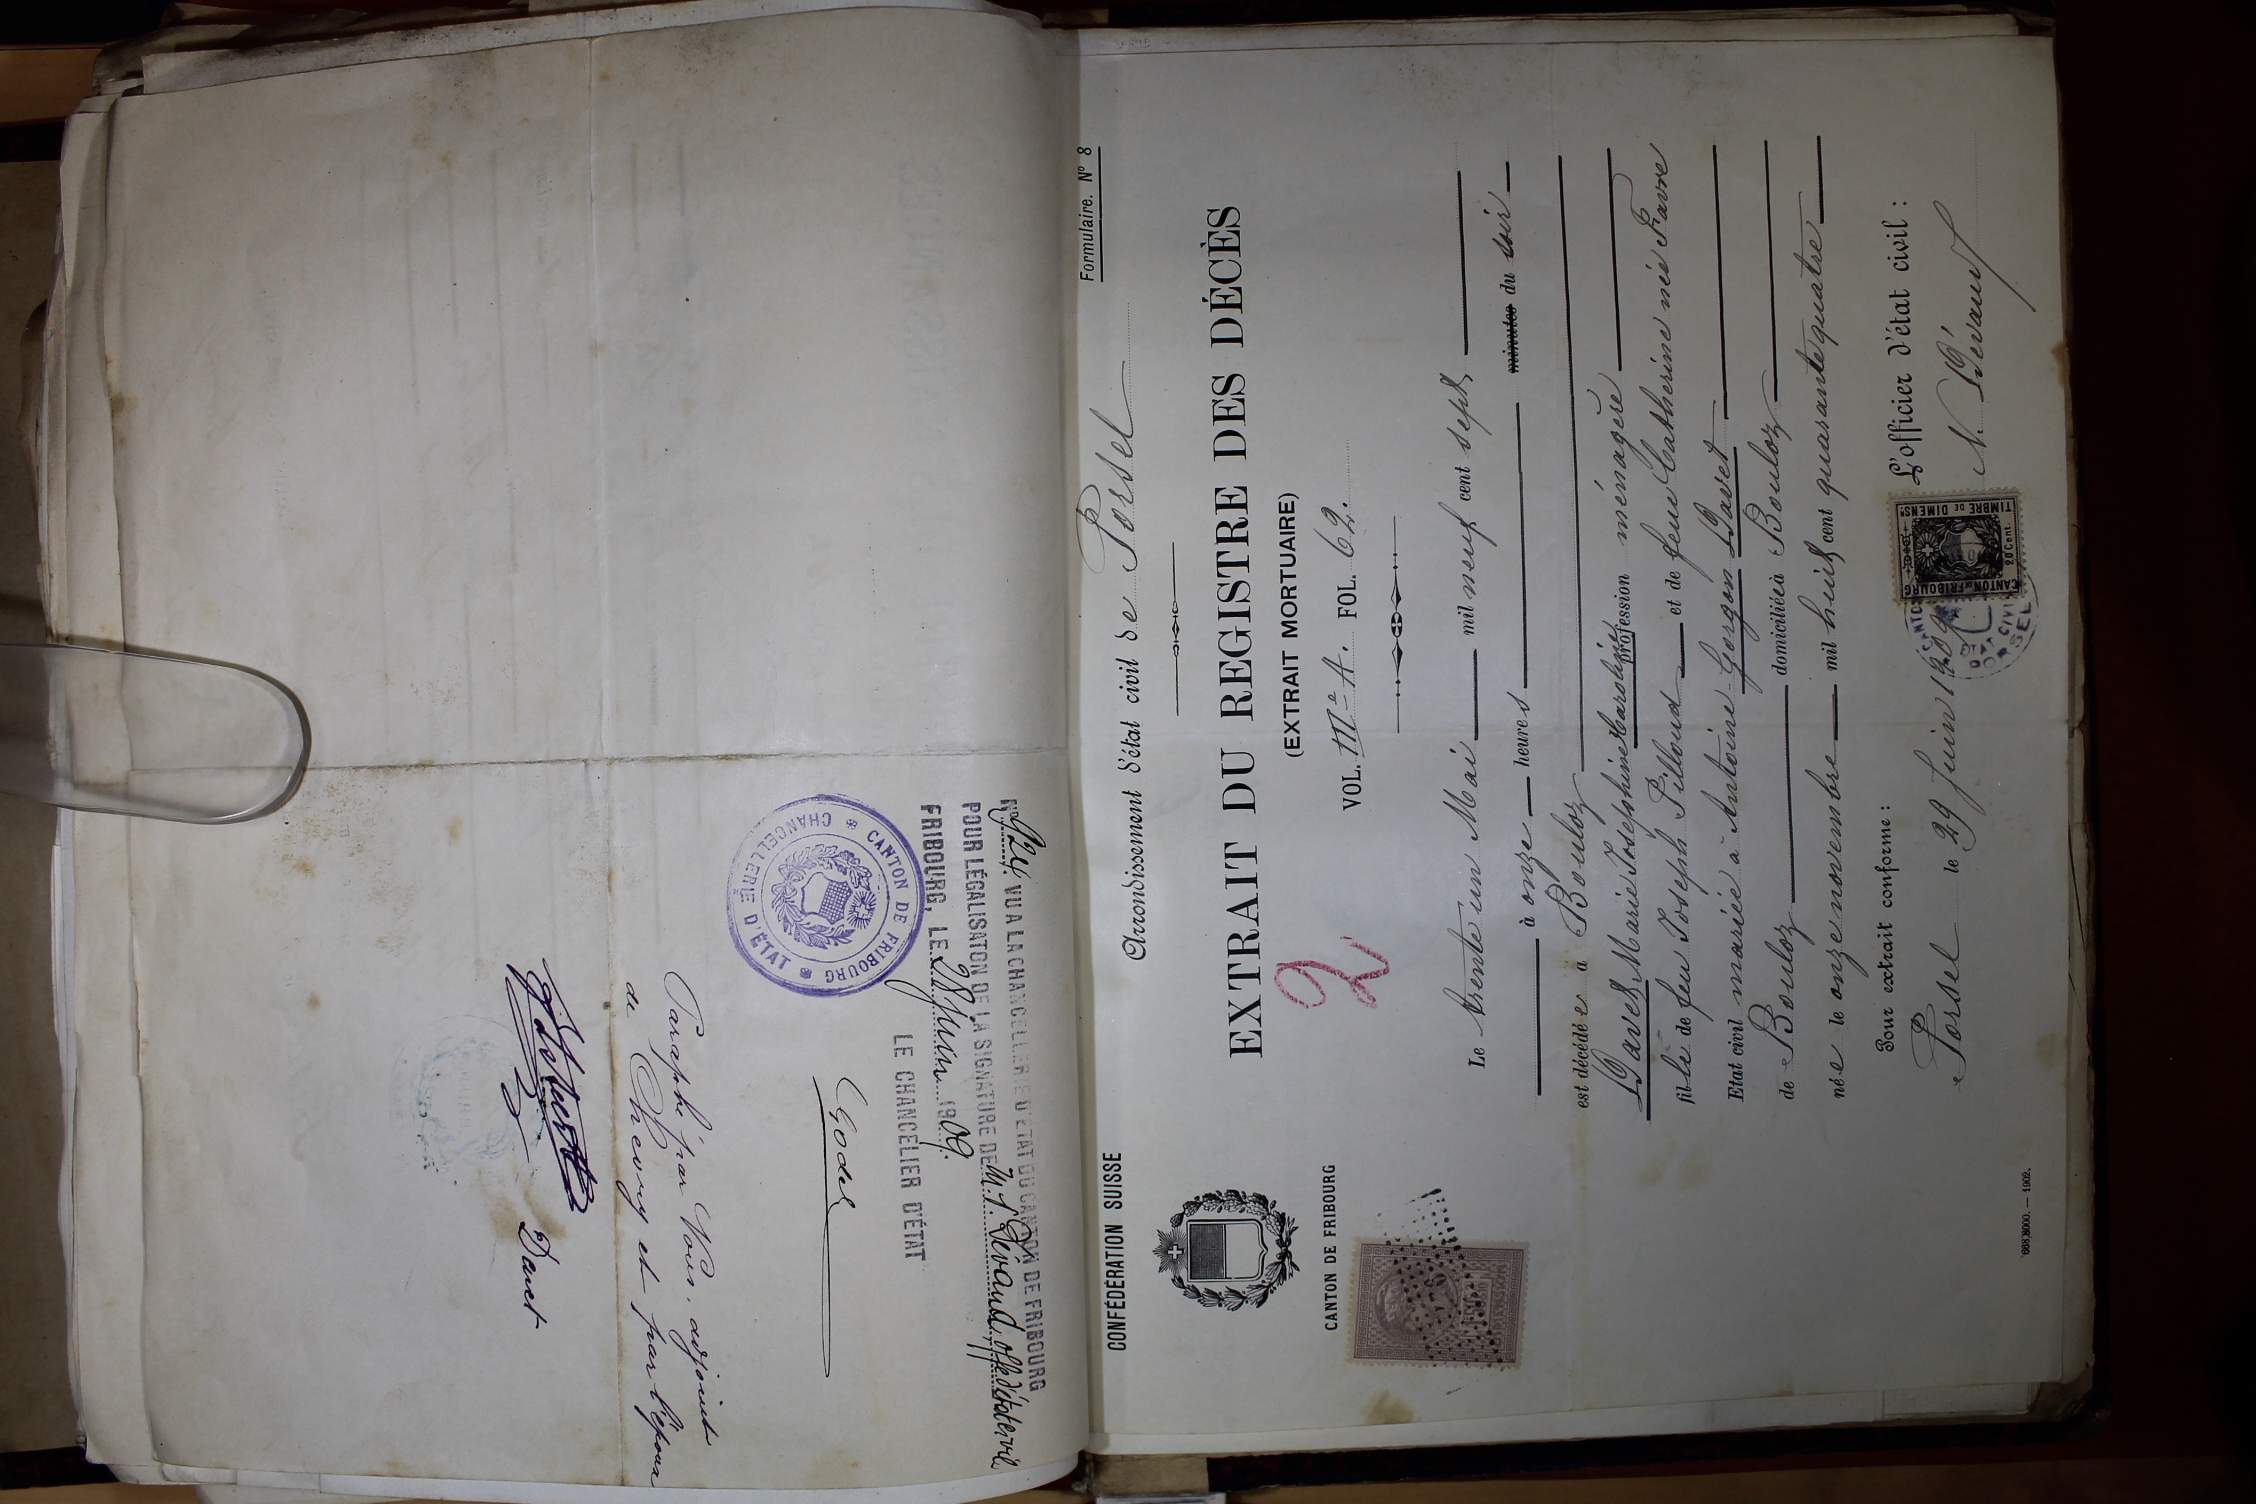 Formulaire. Nº 8
CONFÉDÉRATION SUISSE
Arrondissement d'état civil de Porsel
CANTON DE FRIBOURG
EXTRAIT DU REGISTRE DES DÉCÈS
(EXTRAIT MORTUAIRE)
2
VOL. IIIe A. FOL. 62.
Le trente un Mai mil neuf cent sept
à onze heures minutes du soir
est décédée à Bouloz
Davet Marie Joséphine Caroline profession ménagère
fille de feu Joseph Pilloud et de feue Catherine née Favre
Etat civil mariée à Antoine Gorgon Davet
de Bouloz domiciliée à Bouloz
née le onze novembre mil huit cent quarante quatre
Pour extrait conforme :
L'officier d'état civil :
Porsel le 29 Juin 1909
N. Dévaud
CANTON DE FRIBOURG
TIMBRE DE DIMENSN
20 Cent.
668,8000. — 1902.
VU A LA CHANCELLERIE D'ETAT DU CANTON DE FRIBOURG
POUR LÉGALISATION DE LA SIGNATURE DE M. Dévaud, off. d'état civil
FRIBOURG, LE 28 Juin 1909.
LE CHANCELIER D'ÉTAT
Godel
CANTON DE FRIBOURG
CHANCELLERIE D'ÉTAT
Paraphé par Nous, adjoint
de Chevry et par l'époux
Davet